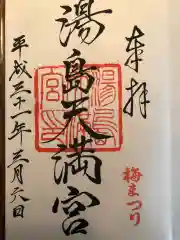 奉拝
梅まつり
湯島天満宮
平成三十一年三月六日